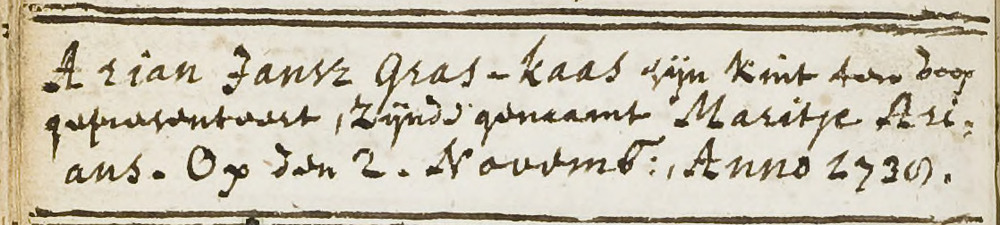 Arian Jansz Gras-kaas zijn kint ten doop
gepresenteert, Zijnde genaamt Maritje Ari-
ans. Op den 2. Novemb:, Anno 1730.